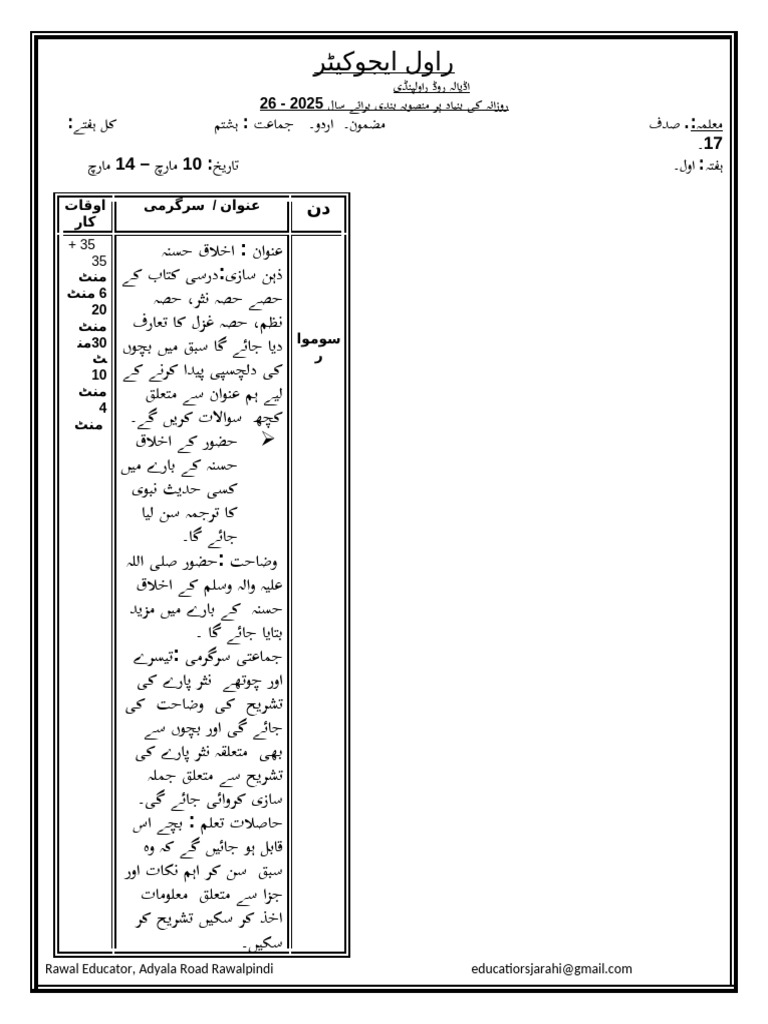 راول ایجوکیٹر
اڈیالہ روڈ راولپنڈی
روزانہ کی بنیاد پر منصوبہ بندی برائے سال 2025 - 26
معلمہ:. صدف مضمون۔ اردو۔ جماعت : ہشتم کل ہفتے:
17۔
ہفتہ: اول۔ تاریخ: 10 مارچ – 14 مارچ
دن
عنوان / سرگرمی
اوقات
کار
سوموا
ر
عنوان : اخلاق حسنہ
ذہن سازی:درسی کتاب کے
حصے حصہ نثر، حصہ
نظم، حصہ غزل کا تعارف
دیا جائے گا سبق میں بچوں
کی دلچسپی پیدا کرنے کے
لیے ہم عنوان سے متعلق
کچھ سوالات کریں گے۔
➢ حضور کے اخلاق
حسنہ کے بارے میں
کسی حدیث نبوی
کا ترجمہ سن لیا
جائے گا۔
وضاحت :حضور صلی اللہ
علیہ والہ وسلم کے اخلاق
حسنہ کے بارے میں مزید
بتایا جائے گا ۔
جماعتی سرگرمی :تیسرے
اور چوتھے نثر پارے کی
تشریح کی وضاحت کی
جائے گی اور بچوں سے
بھی متعلقہ نثر پارے کی
تشریح سے متعلق جملہ
سازی کروائی جائے گی۔
حاصلات تعلم : بچے اس
قابل ہو جائیں گے کہ وہ
سبق سن کر اہم نکات اور
جزا سے متعلق معلومات
اخذ کر سکیں تشریح کر
سکیں۔
35 +
35
منٹ
6 منٹ
20
منٹ
30من
ٹ
10
منٹ
4
منٹ
Rawal Educator, Adyala Road Rawalpindi educatiorsjarahi@gmail.com